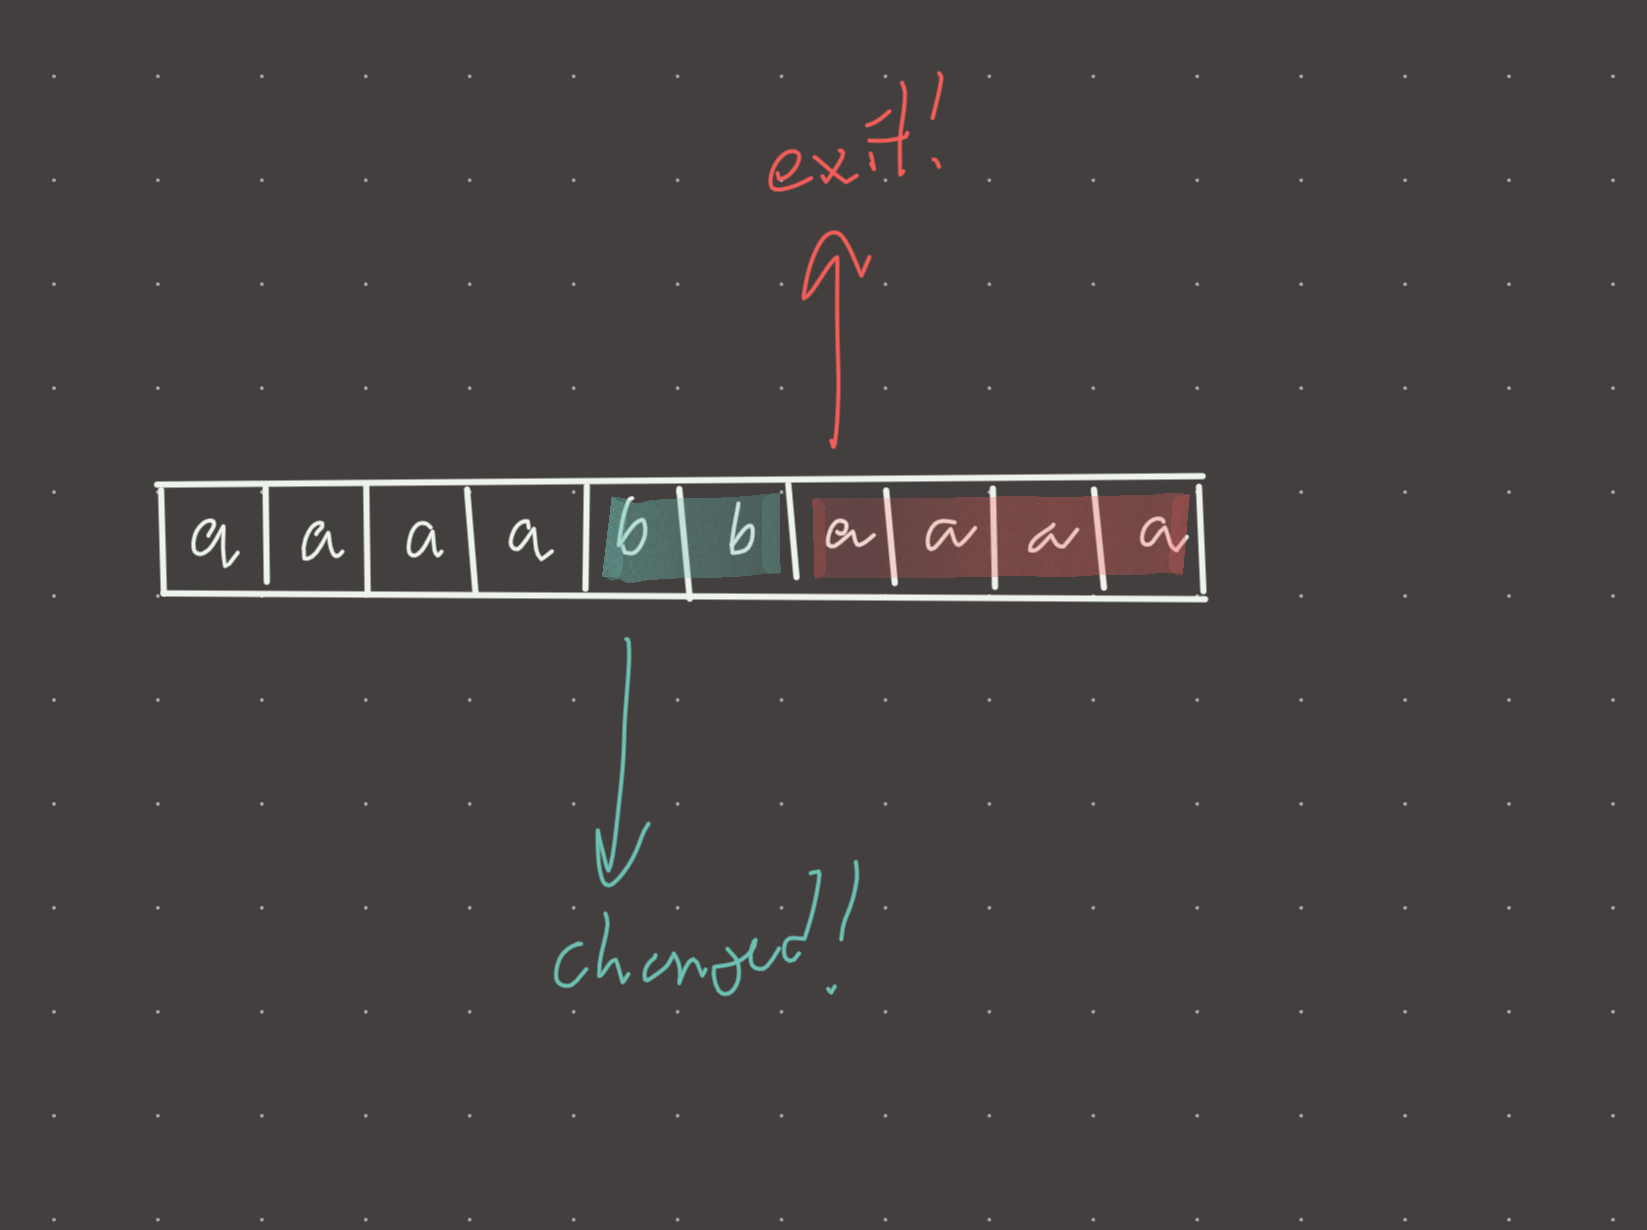 exit!
a a a a b b a a a a
changed!